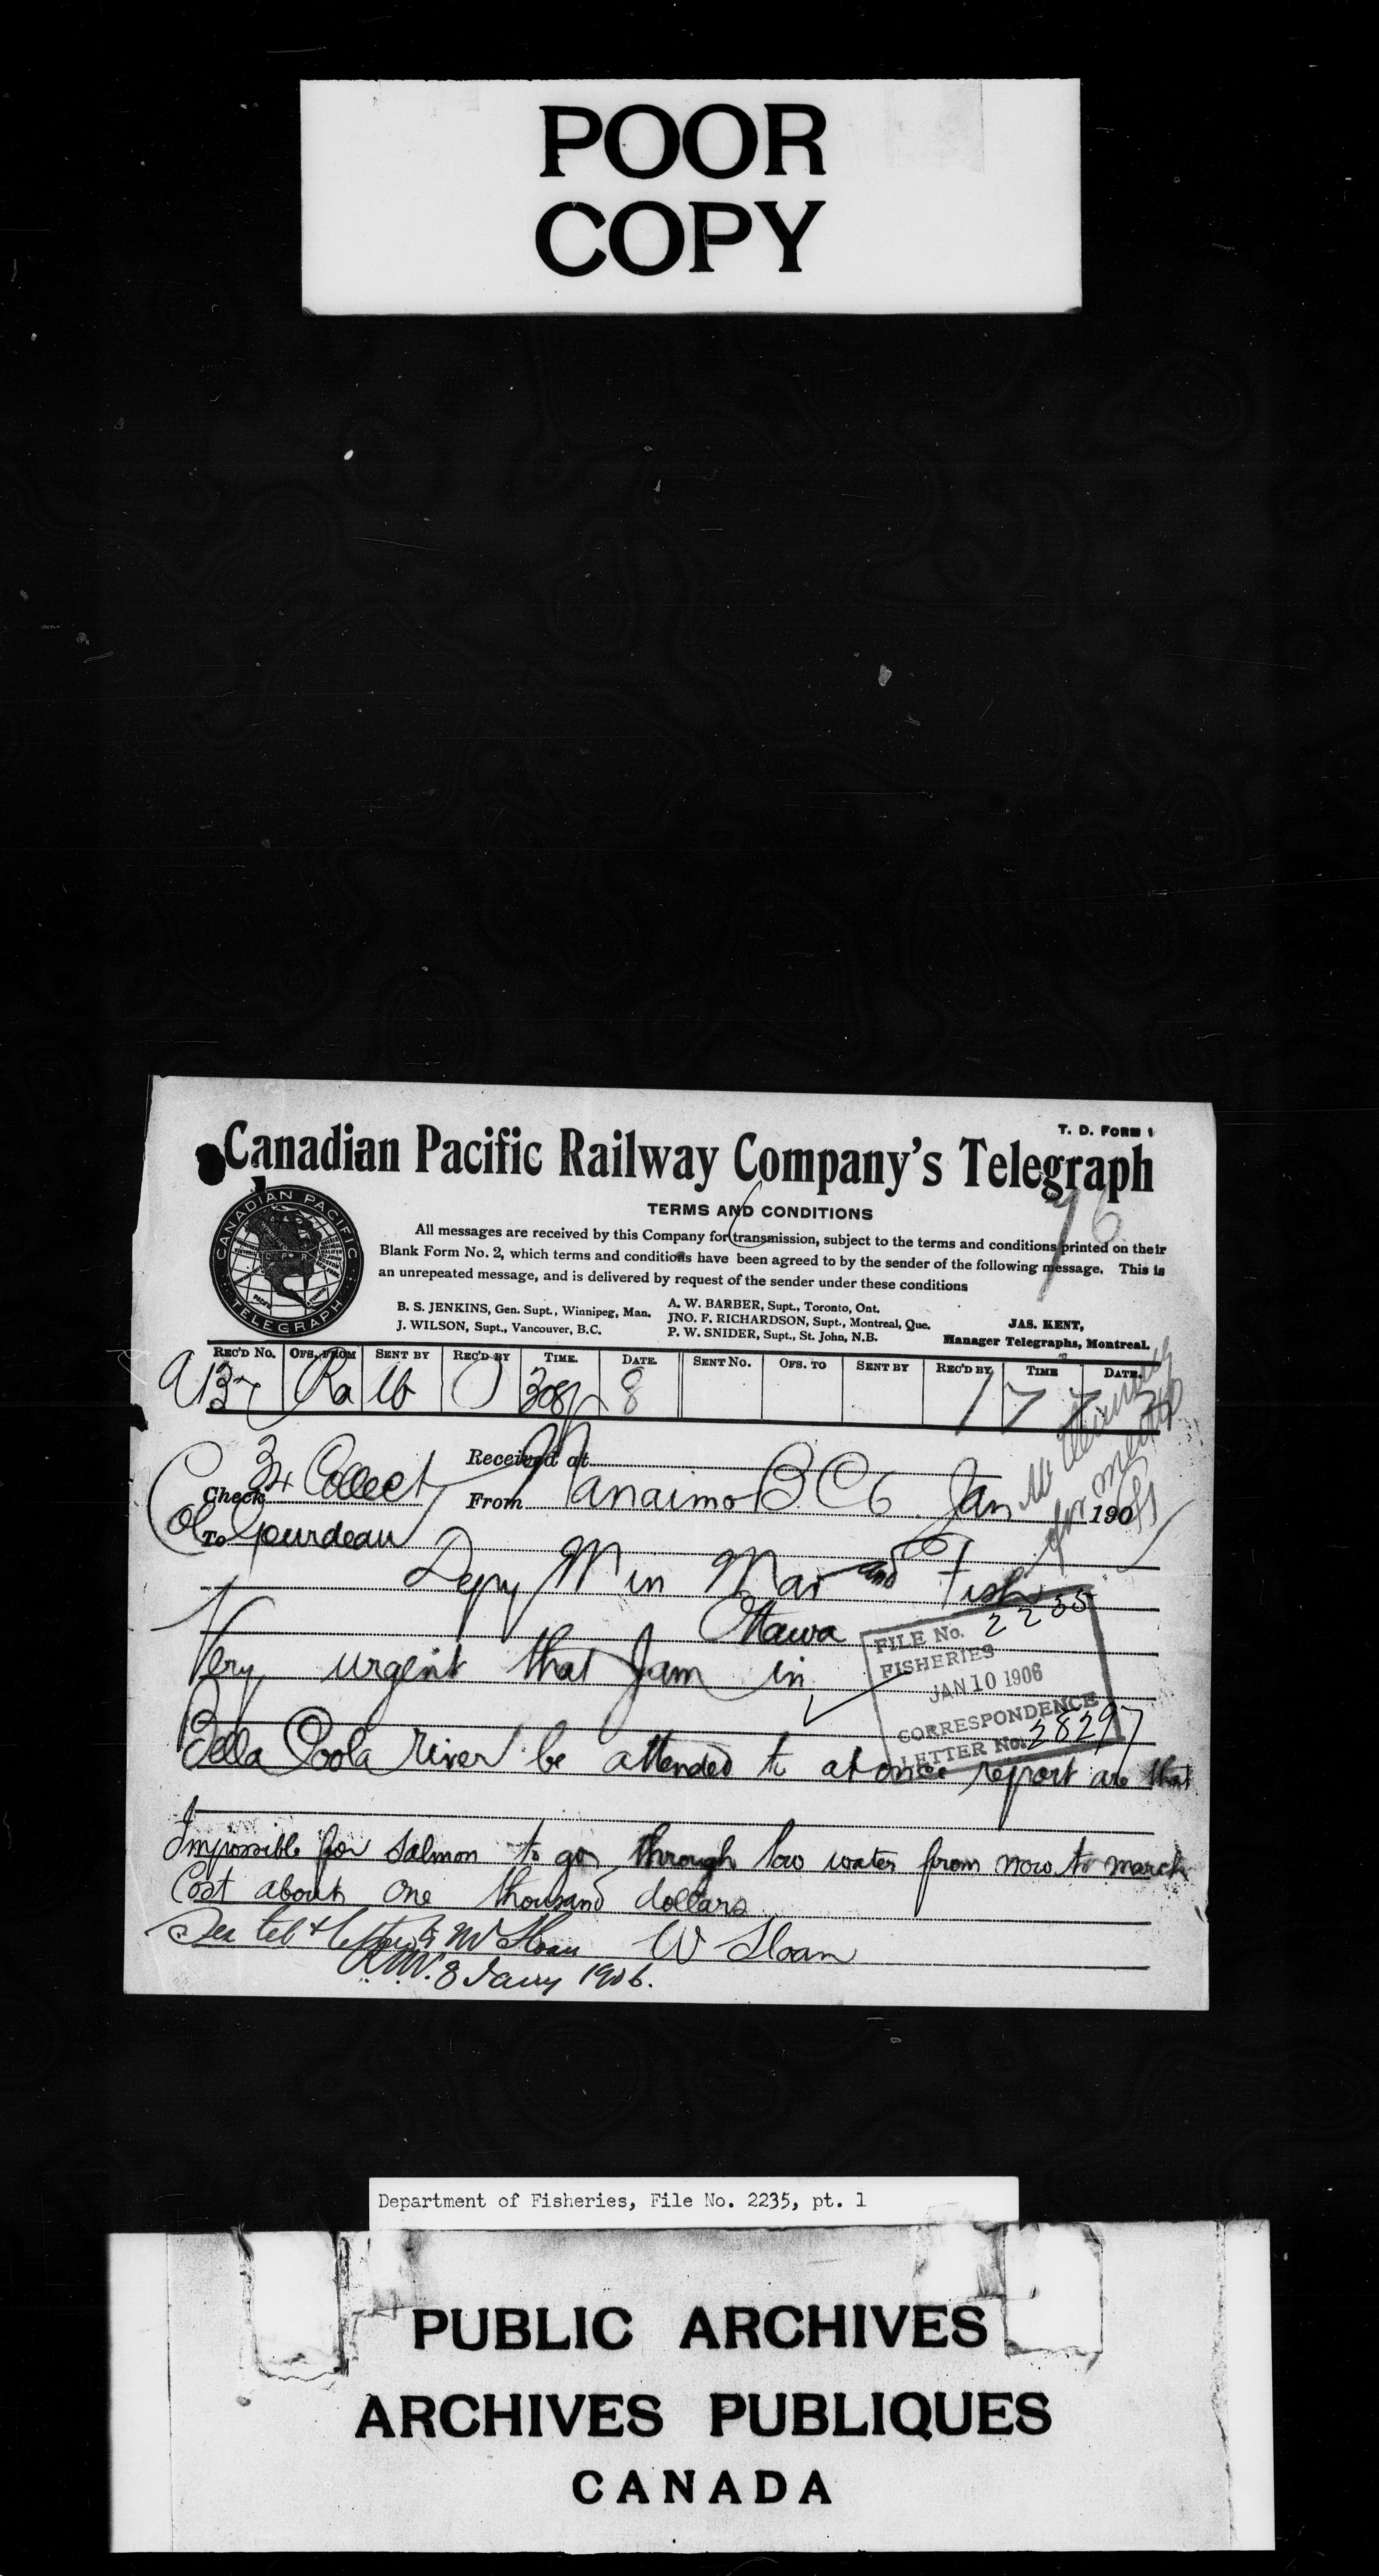 POOR
COPY
T. D. FORM 1
Canadian Pacific Railway Company's Telegraph
76
TERMS AND CONDITIONS
CANADIAN PACIFIC
TELEGRAPH
All messages are received by this Company for transmission, subject to the terms and conditions printed on their
Blank Form No. 2, which terms and conditions have been agreed to by the sender of the following message. This is
an unrepeated message, and is delivered by request of the sender under these conditions
B. S. JENKINS, Gen. Supt., Winnipeg, Man.
J. WILSON, Supt., Vancouver, B.C.
A. W. BARBER, Supt., Toronto, Ont.
JNO. F. RICHARDSON, Supt., Montreal, Que.
P. W. SNIDER, Supt., St. John, N.B.
JAS. KENT,
Manager Telegraphs, Montreal.
REC'D No. OFS. FROM SENT BY REC'D BY TIME. DATE. SENT No. OFS. TO SENT BY REC'D BY TIME DATE.
A137 Ra 8
Received at
Check 34 Collect From Nanaimo B C 6 Jan 190
To Col Gourdeau
Depy Min Mar and Fish
Ottawa
FILE No. 2235
FISHERIES
JAN 10 1906
CORRESPONDENCE
LETTER No. 28297
Very urgent that Jam in
Bella Coola river be attended to at once report are that
Impossible for salmon to go through low water from now to march
Cost about one thousand dollars
See tel & letter to Mr Sloan W Sloan
8 Jany 1906.
Department of Fisheries, File No. 2235, pt. 1
PUBLIC ARCHIVES
ARCHIVES PUBLIQUES
CANADA